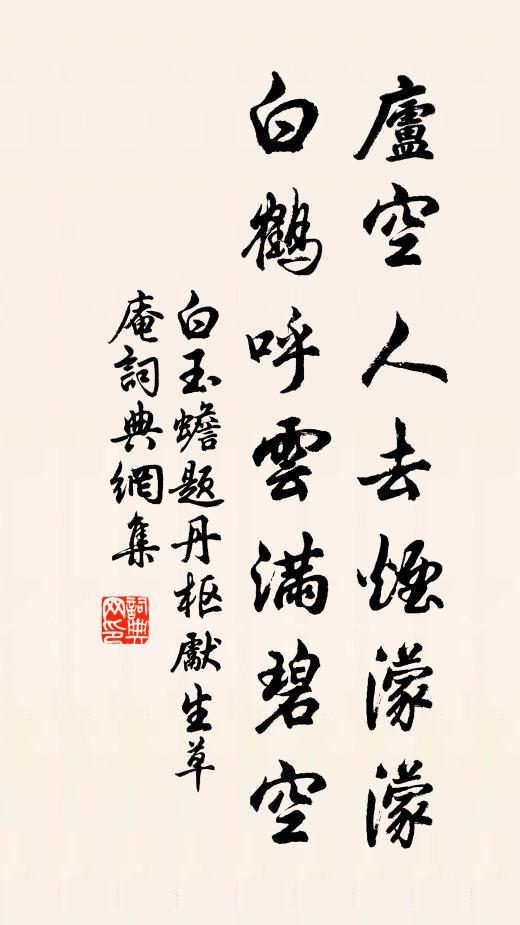 廬空人去煙濛濛
白鶴呼雲滿碧空
白玉蟾题丹枢獻生草
庵詞典網集
詞典
网印